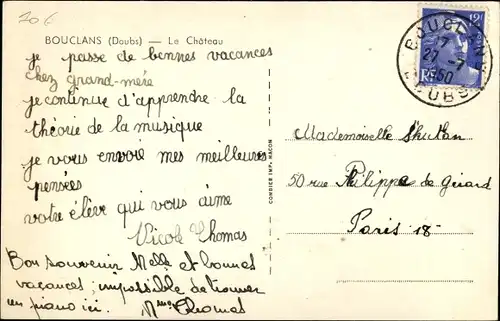 20 €
BOUCLANS (Doubs) — Le Château
je passe de bonnes vacances
chez grand-mère
je continue d'apprendre la
théorie de la musique
je vous envoie mes meilleures
pensées
votre élève qui vous aime
Nicole Thomas
Bon souvenir Melle et bonnes
vacances ; impossible de trouver
un piano ici. Mme Thomas
COMBIER IMP. MACON
12F
RF
BOUCLANS
17
27 -7
1950
DOUBS
Mademoiselle
50 rue Philippe de Girard
Paris 18e